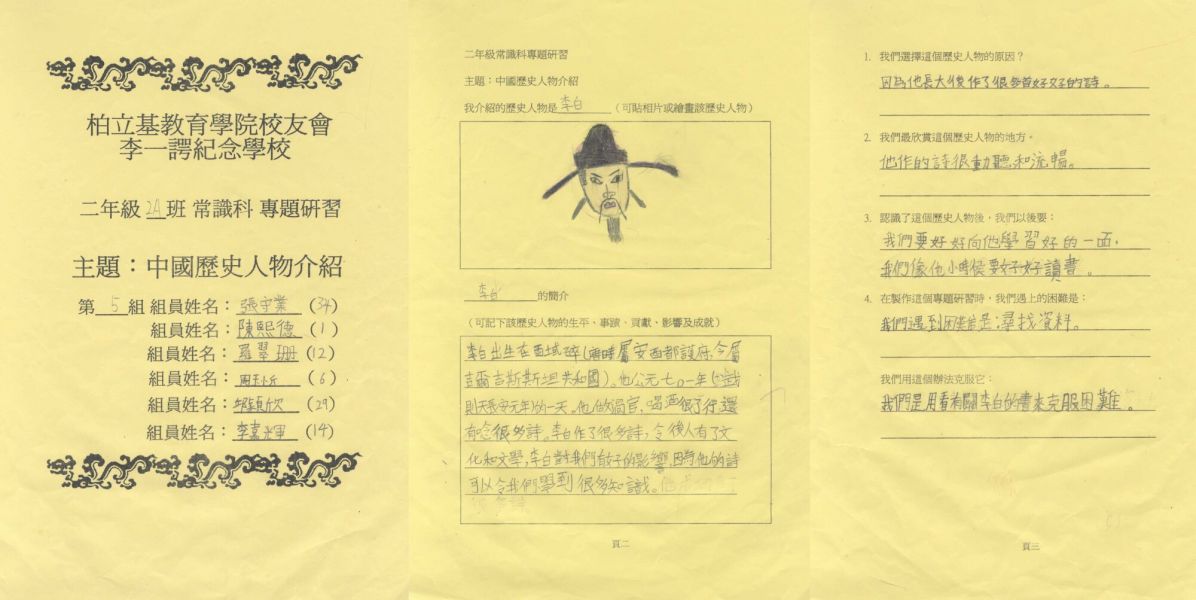 柏立基教育學院校友會
李一諤紀念學校
二年級 2A 班 常識科 專題研習
主題：中國歷史人物介紹
第 5 組 組員姓名：張守業 (34)
組員姓名：陳熙德 (1)
組員姓名：羅翠珊 (12)
組員姓名： (6)
組員姓名：穎欣 (29)
組員姓名：李嘉 (14)
二年級常識科專題研習
主題：中國歷史人物介紹
我介紹的歷史人物是 李白 （可貼相片或繪畫該歷史人物）
李白 的簡介
（可記下該歷史人物的生平、事蹟、貢獻、影響及成就）
李白出生在西域碎(唐時屬安西都護府,今屬
吉爾吉斯斯坦共和國)。他公元七〇一年(武
則天長安元年)的一天。他做過官，喝酒很了行,還
有唸很多詩。李白作了很多詩，令後人有了文
化和文學，李白對我們的影響,因為他的詩
可以令我們學到很多知識。
頁二
1. 我們選擇這個歷史人物的原因？
因為他長大後作了很多首好好的詩。
2. 我們最欣賞這個歷史人物的地方。
他作的詩很動聽和流暢。
3. 認識了這個歷史人物後，我們以後要：
我們要好好向他學習好的一面，
我們像他小時侯要好好讀書。
4. 在製作這個專題研習時，我們遇上的困難是：
我們遇到困難是:尋找資料。
我們用這個辦法克服它：
我們是用看有關李白的書來克服困難。
頁三